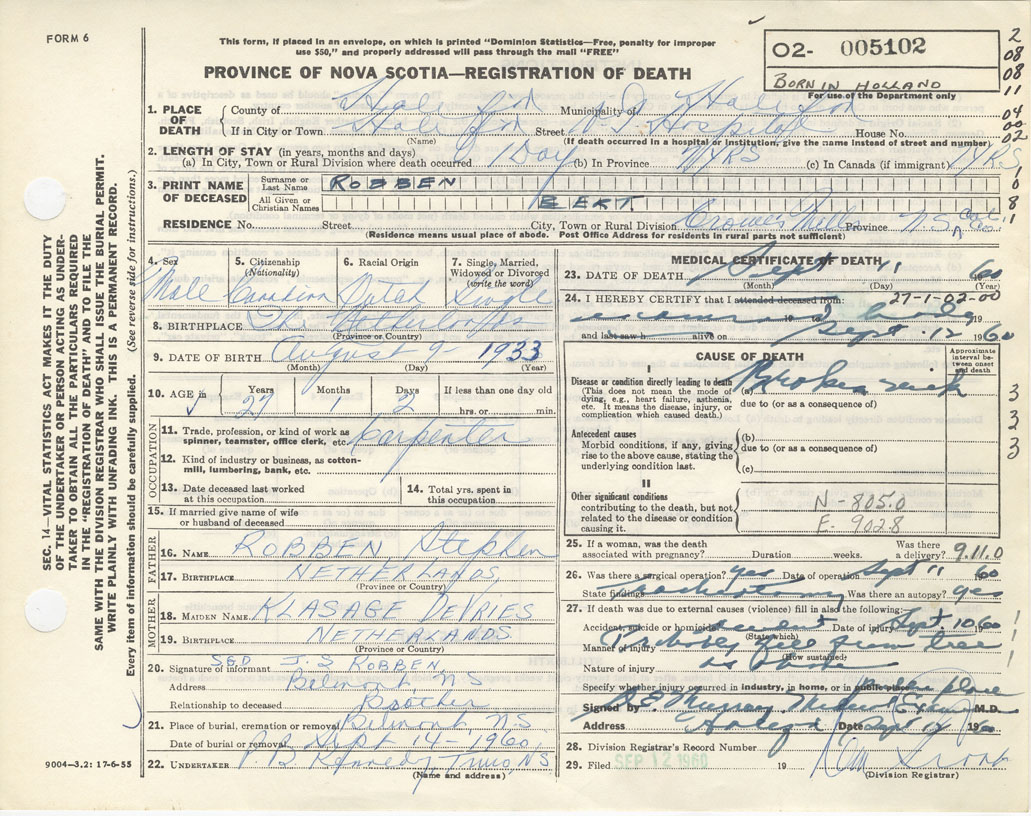 FORM 6
This form, if placed in an envelope, on which is printed "Dominion Statistics—Free, penalty for improper
use $50," and properly addressed will pass through the mail "FREE"
PROVINCE OF NOVA SCOTIA—REGISTRATION OF DEATH
O2- 005102
BORN IN HOLLAND
For use of the Department only
2
08
08
11
04
00
02
1. PLACE OF DEATH
County of Halifax Municipality of Halifax
If in City or Town Halifax Street V.G. Hospital House No.
(Name) (If death occurred in a hospital or institution, give the name instead of street and number)
2. LENGTH OF STAY (in years, months and days)
(a) In City, Town or Rural Division where death occurred 1 Day (b) In Province YRS (c) In Canada (if immigrant) YRS
3. PRINT NAME OF DECEASED
Surname or Last Name ROBBEN
All Given or Christian Names BERT
RESIDENCE No. Street City, Town or Rural Division Province NS
(Residence means usual place of abode. Post Office Address for residents in rural parts not sufficient)
4. Sex Male
5. Citizenship (Nationality) Canadian
6. Racial Origin Dutch
7. Single, Married, Widowed or Divorced (write the word) Single
8. BIRTHPLACE The Netherlands
(Province or Country)
9. DATE OF BIRTH August 9 - 1933
(Month) (Day) (Year)
10. AGE in Years 27 Months 1 Days 2 If less than one day old
hrs. or min.
OCCUPATION
11. Trade, profession, or kind of work as spinner, teamster, office clerk, etc. Karpenter
12. Kind of industry or business, as cotton-mill, lumbering, bank, etc.
13. Date deceased last worked at this occupation
14. Total yrs. spent in this occupation
15. If married give name of wife or husband of deceased
FATHER
16. NAME ROBBEN Stephen
17. BIRTHPLACE NETHERLANDS
(Province or Country)
MOTHER
18. MAIDEN NAME KLASAGE DEVRIES
19. BIRTHPLACE NETHERLANDS
(Province or Country)
20. Signature of informant SGD J. S ROBBEN
Address Belmont, NS
Relationship to deceased Brother
21. Place of burial, cremation or removal Belmont, N.S
Date of burial or removal Sept 14 - 1960
22. UNDERTAKER P. B Kennedy Truro, NS
(Name and address)
MEDICAL CERTIFICATE OF DEATH
23. DATE OF DEATH Sept 11 1960
(Month) (Day) (Year)
24. I HEREBY CERTIFY that I attended deceased from: 27-1-02-00
examined body 19 to 19
and last saw h alive on Sept. 12 1960
CAUSE OF DEATH
Approximate interval between onset and death
I
Disease or condition directly leading to death
(This does not mean the mode of dying, e.g., heart failure, asthenia, etc. It means the disease, injury, or complication which caused death.)
(a) Broken neck
due to (or as a consequence of)
Antecedent causes
Morbid conditions, if any, giving rise to the above cause, stating the underlying condition last.
(b)
due to (or as a consequence of)
(c)
II
Other significant conditions
contributing to the death, but not related to the disease or condition causing it.
N - 805.0
E - 902.8
3
3
2
3
25. If a woman, was the death associated with pregnancy? Duration weeks. Was there a delivery? 9.11.0
26. Was there a surgical operation? yes Date of operation Sept 11 1960
State findings Tracheotomy Was there an autopsy? yes
27. If death was due to external causes (violence) fill in also the following:
Accident, suicide or homicide Accident Date of injury Sept. 10 1960
(State which)
Manner of injury Probably fell from tree
(How sustained)
Nature of injury as above
Specify whether injury occurred in industry, in home, or in public place place
Signed by Murray, M.D.
Address Date Sept 14 1960
28. Division Registrar's Record Number
29. Filed SEP 12 1960 19
(Division Registrar)
SEC. 14—VITAL STATISTICS ACT MAKES IT THE DUTY
OF THE UNDERTAKER OR PERSON ACTING AS UNDER-
TAKER TO OBTAIN ALL THE PARTICULARS REQUIRED
IN THE "REGISTRATION OF DEATH" AND TO FILE THE
SAME WITH THE DIVISION REGISTRAR WHO SHALL ISSUE THE BURIAL PERMIT.
WRITE PLAINLY WITH UNFADING INK. THIS IS A PERMANENT RECORD.
Every item of information should be carefully supplied. (See reverse side for instructions.)
9004—3.2: 17-6-55